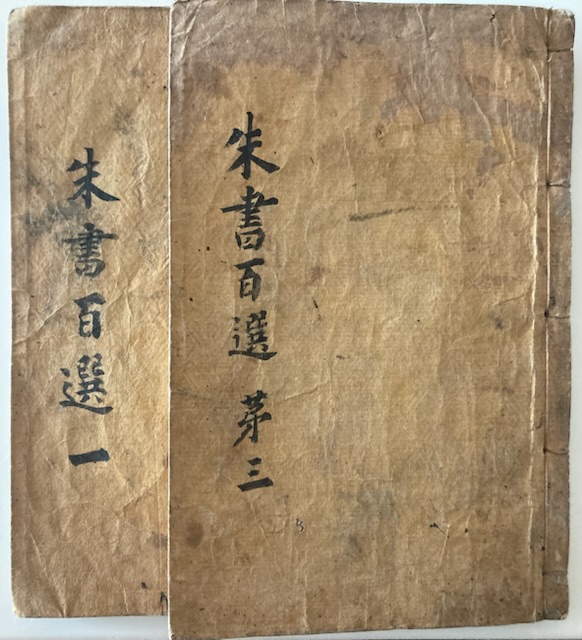 朱書百選 苐三
朱書百選 一